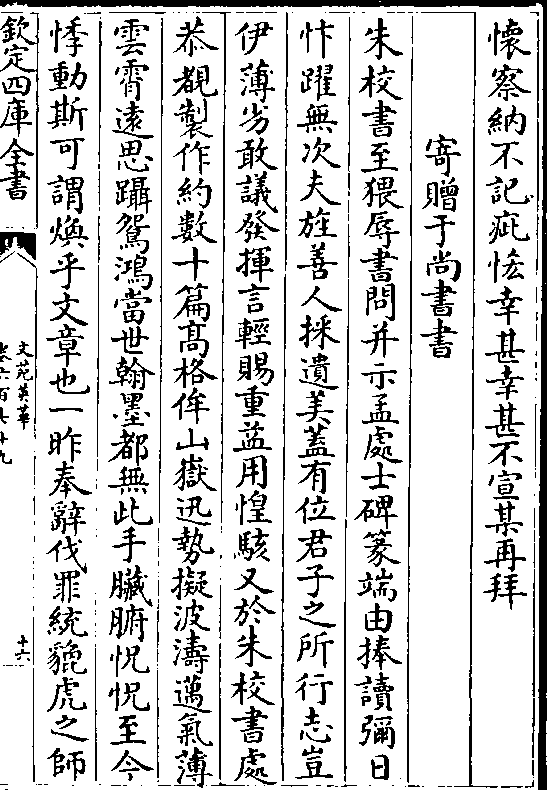 懷察納不記疵恡幸甚幸甚不宣某再拜
寄贈于尚書書
朱校書至猥辱書問并示孟處士碑篆端由捧讀彌日
忭躍無次夫旌善人採遺美蓋有位君子之所行志豈
伊薄劣敢議發揮言輕賜重藍用惶駭又於朱校書處
恭覩製作約數十篇髙格侔山嶽迅勢擬波濤邁氣薄
雲霄逺思躡鴛鴻當世翰墨都無此手臟腑怳怳至今
悸動斯可謂煥乎文章也一昨奉辭伐罪統貔虎之師
欽定四庫全書
文苑英華
卷六百六十九
十六